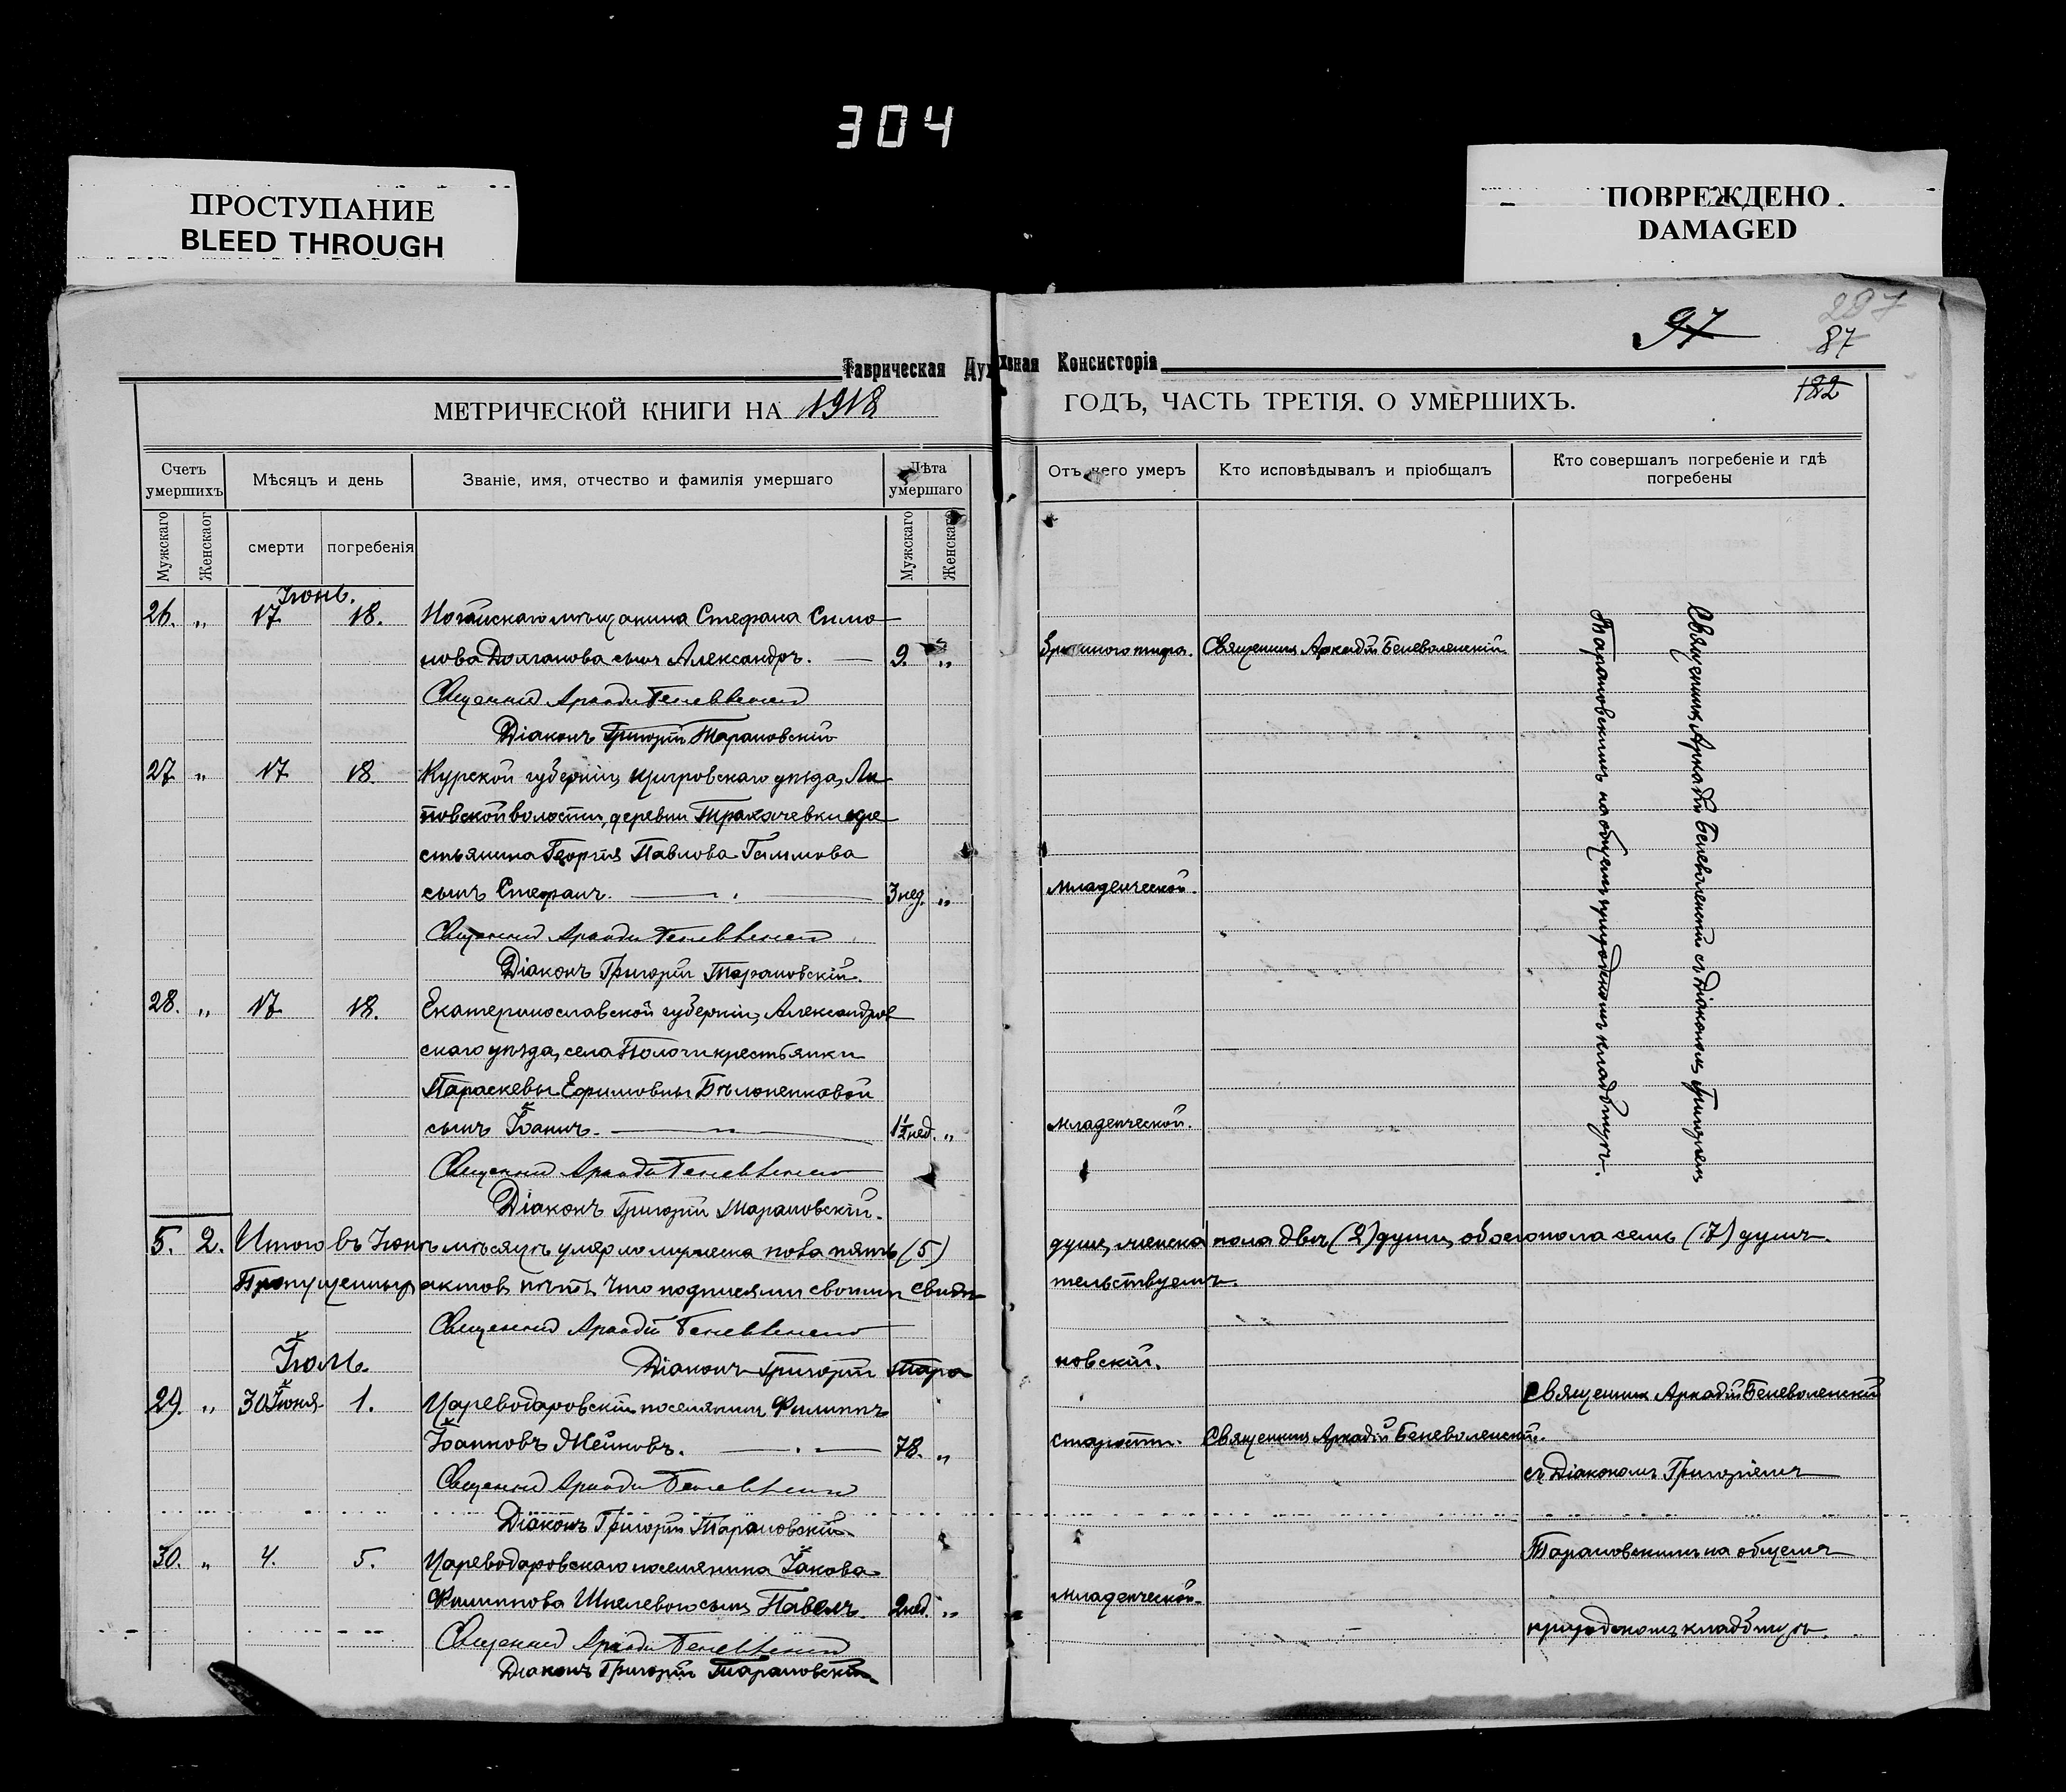 304
ПРОСТУПАНИЕ
BLEED THROUGH
ПОВРЕЖДЕНО
DAMAGED
97
287
87
182
Таврическая Духовная Консисторія
МЕТРИЧЕСКОЙ КНИГИ НА 1918 ГОДЪ, ЧАСТЬ ТРЕТІЯ. О УМЕРШИХЪ.
Счетъ умершихъ
Мѣсяцъ и день
Званіе, имя, отчество и фамилія умершаго
Лѣта умершаго
Отъ чего умеръ
Кто исповѣдывалъ и пріобщалъ
Кто совершалъ погребеніе и гдѣ погребены
Мужскаго
Женскаог
смерти
погребенія
Мужскаго
Женскаго
Іюнь.
26. „ 17 18. Ногайскаго мѣщанина Стефана Симо
нова Долганова сынъ Александръ. 9. „ Брюшного тифа. Священникъ Аркадій Беневоленскій
Священникъ Аркадій Беневоленскій
Діаконъ Григорій Тарановскій
27. „ 17 18. Курской губерніи, Щигровскаго уѣзда, Ли
повской волости, деревни кре
стьянина Георгія Павлова
сынъ Стефанъ. 3 нед. „ младенческой.
Священникъ Аркадій Беневоленскій
Діаконъ Григорій Тарановскій.
28. „ 17 18. Екатеринославской губерніи, Александров
скаго уѣзда, села Пологи крестьянки
Параскевы Ефимовны
сынъ Іоаннъ. 1½ нед. „ младенческой.
Священникъ Аркадій Беневоленскій
Діаконъ Григорій Тарановскій.
Священникъ Аркадій Беневоленскій съ Діакономъ Григоріемъ
Тарановскимъ на общемъ приходскомъ кладбищѣ.
5. 2. Итого въ Іюнѣ мѣсяцѣ умерло мужеска пола пять (5) душъ, женска пола двѣ (2) души, обоего пола семь (7) душъ.
Пропущенныхъ актовъ нѣтъ. Что подписями своими свидѣ тельствуемъ.
Священникъ Аркадій Беневоленскій
Діаконъ Григорій Тара новскій.
Іюль.
29. „ 30 Іюня 1. Цареводаровскій поселянинъ Филиппъ
Іоанновъ Жейновъ. 78. „ старости. Священникъ Аркадій Беневоленскій.
Священникъ Аркадій Беневоленскій
Діаконъ Григорій Тарановскій.
30. „ 4. 5. Цареводаровскаго поселянина Іакова
Филиппова Шпелевого сынъ Павелъ. 2 нед. „ младенческой.
Священникъ Аркадій Беневоленскій
Діаконъ Григорій Тарановскій
Священникъ Аркадій Беневоленскій
съ Діакономъ Григоріемъ
Тарановскимъ на общемъ
приходскомъ кладбищѣ.